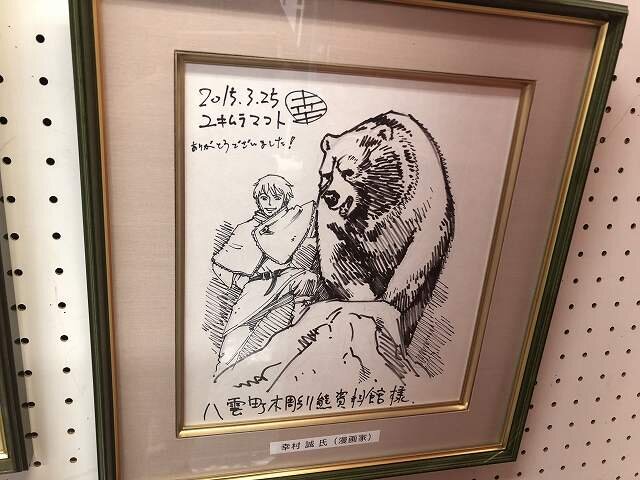 2015.3.25 幸
ユキムラマコト
ありがとうございました!
八雲町木彫り熊資料館様.
幸村 誠 氏(漫画家)